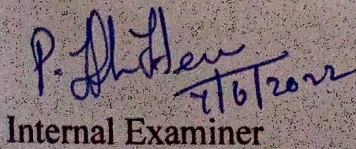 P.
7/6/2022
Internal Examiner